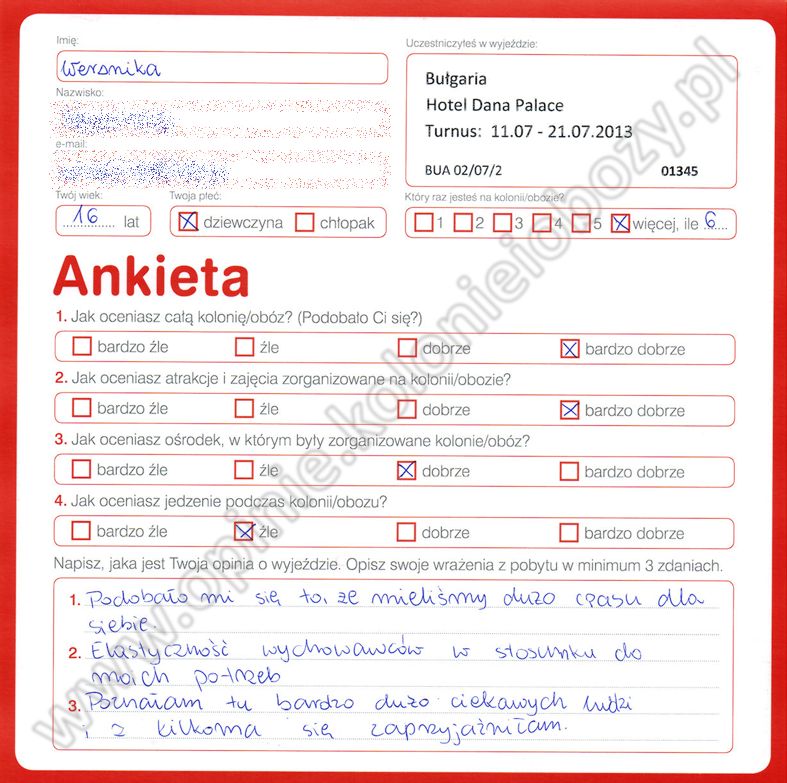 Imię:
Weronika
Uczestniczyłeś w wyjeździe:
Bułgaria
Hotel Dana Palace
Turnus: 11.07 - 21.07.2013
BUA 02/07/2
01345
Nazwisko:
e-mail:
Twój wiek:
16 lat
Twoja płeć:
dziewczyna chłopak
Który raz jesteś na kolonii/obozie?
1 2 3 4 5 więcej, ile 6
Ankieta
1. Jak oceniasz całą kolonię/obóz? (Podobało Ci się?)
bardzo źle źle dobrze bardzo dobrze
2. Jak oceniasz atrakcje i zajęcia zorganizowane na kolonii/obozie?
bardzo źle źle dobrze bardzo dobrze
3. Jak oceniasz ośrodek, w którym były zorganizowane kolonie/obóz?
bardzo źle źle dobrze bardzo dobrze
4. Jak oceniasz jedzenie podczas kolonii/obozu?
bardzo źle źle dobrze bardzo dobrze
Napisz, jaka jest Twoja opinia o wyjeździe. Opisz swoje wrażenia z pobytu w minimum 3 zdaniach.
1. Podobało mi się to, że mieliśmy dużo czasu dla
siebie.
2. Elastyczność wychowawców w stosunku do
moich potrzeb
3. Poznałam tu bardzo dużo ciekawych ludzi
i z kilkoma się zaprzyjaźniłam.
www.opinie.kolonieiobozy.pl